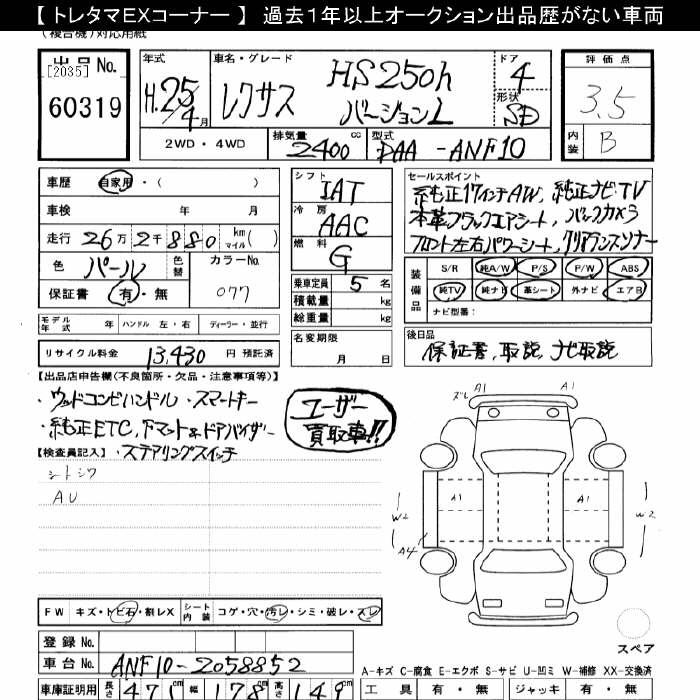 【 トレタマEXコーナー 】 過去1年以上オークション出品歴がない車両
(複合機)対応用紙
出品 No.
[2035]
60319
年式
H.25/4月
車名・グレード
レクサス HS250h
バージョンL
ドア
4
形状
SD
評価点
3.5
内装 B
2WD・4WD
排気量 2400 cc
型式 DAA-ANF10
車歴 自家用・( )
車検 年 月
走行 26万2千880 km マイル( )
色 パール 色替 カラーNo. 077
保証書 有・無
モデル年式 年 ハンドル 左・右 ディーラー・並行
リサイクル料金 13,430 円 預託済
シフト IAT
冷房 AAC
燃料 G
乗車定員 5 名
積載量 kg
総重量 kg
名変期限
月 日
セールスポイント
純正17インチAW、純正ナビ・TV
本革ブラックエアシート、バックカメラ
フロント左右パワーシート、クリアランスソナー
装備品
S/R 純A/W P/S P/W ABS
純TV 純ナビ 革シート 外ナビ エアB
ナビ型番:
後日品
保証書、取説、ナビ取説
【出品店申告欄(不良箇所・欠品・注意事項等)】
・ウッドコンビハンドル ・スマートキー
・純正ETC、Fマット&ドアバイザー
・ステアリングスイッチ
ユーザー
買取車!!
【検査員記入】
シートシワ
AU
ズレ A1 A1
A1 A1
W2 W2
A4
スペア
FW キズ・トビ石・割レX シート内装 コゲ・穴・汚レ・シミ・破レ・スレ
登録 No.
車台 No. ANF10-2058852
車庫証明用 長さ 471 幅 178 cm 高さ 149 cm
A-キズ C-腐食 E-エクボ S-サビ U-凹ミ W-補修 XX-交換済
工具 有・無 ジャッキ 有・無